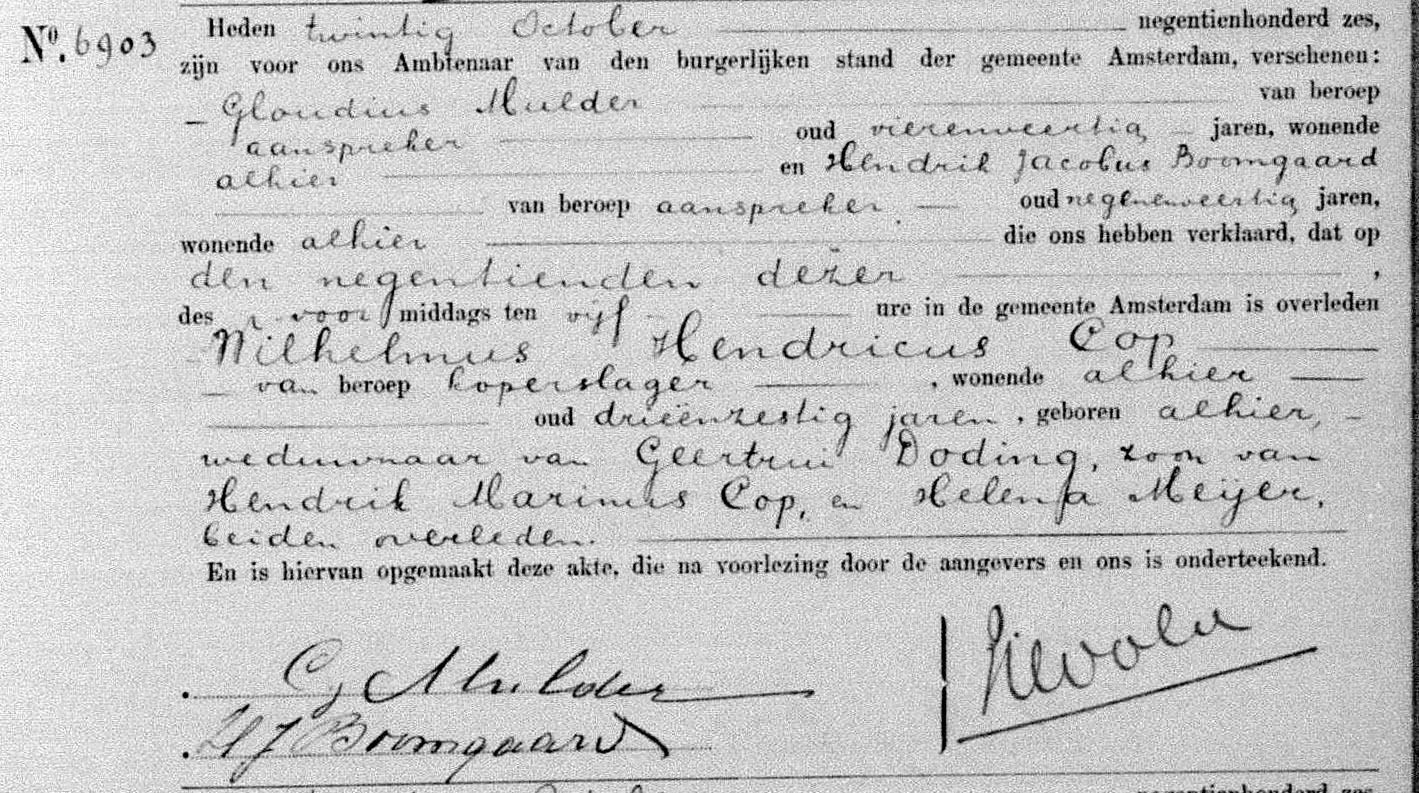 No. 6903
Heden twintig October negentienhonderd zes,
zijn voor ons Ambtenaar van den burgerlijken stand der gemeente Amsterdam, verschenen:
Gloudius Mulder van beroep
aanspreker oud vierenveertig jaren, wonende
alhier en Hendrik Jacobus Boomgaard
van beroep aanspreker oud negenenveertig jaren,
wonende alhier die ons hebben verklaard, dat op
den negentienden dezer,
des voormiddags ten vijf ure in de gemeente Amsterdam is overleden
Wilhelmus Hendricus Cop
van beroep koperslager, wonende alhier
oud drieënzestig jaren, geboren alhier,
weduwnaar van Geertrui Doding, zoon van
Hendrik Marinus Cop, en Helena Meijer,
beiden overleden.
En is hiervan opgemaakt deze akte, die na voorlezing door de aangevers en ons is onderteekend.
G Mulder
H J Boomgaard
negentienhonderd zes,